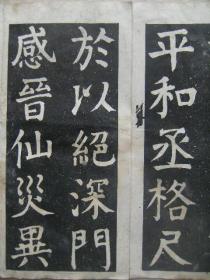 平和丞格尺
於以絕深門
感晉仙災異